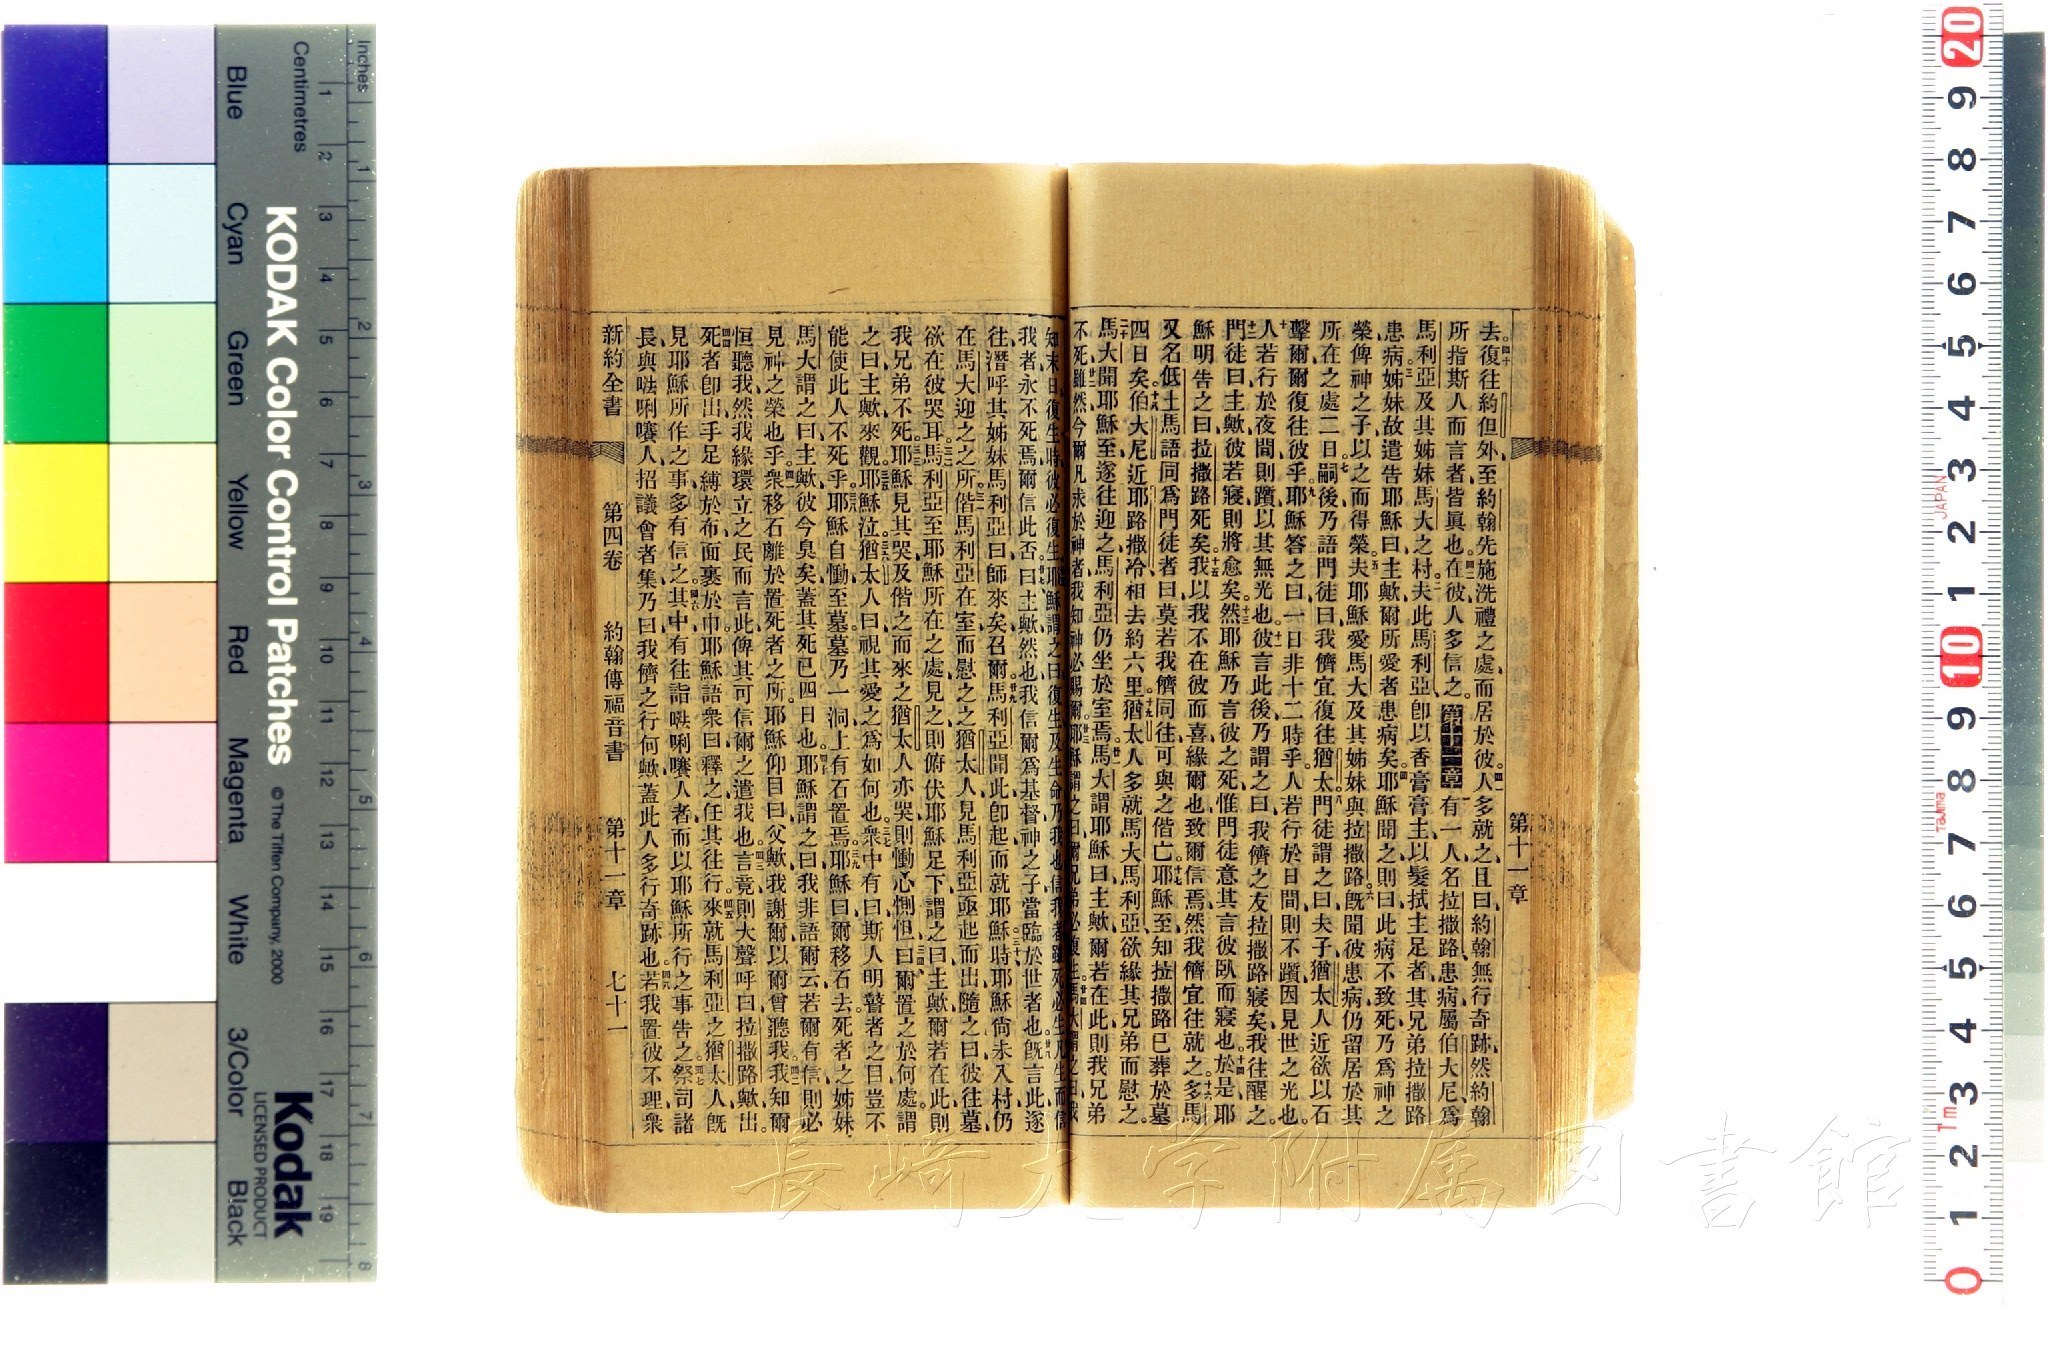 去復往約但外至約翰先施洗禮之處而居於彼人多就之且曰約翰無行奇跡然約翰
所指斯人而言者皆眞也在彼人多信之 第十一章 有一人名拉撒路患病屬伯大尼爲
馬利亞及其姊妹馬大之村夫此馬利亞卽以香膏膏主以髮拭主足者其兄弟拉撒路
患病姊妹故遣告耶穌曰主歟爾所愛者患病矣耶穌聞之則曰此病不致死乃爲神之
榮俾神之子以之而得榮夫耶穌愛馬大及其姊妹與拉撒路旣聞彼患病仍留居於其
所在之處二日嗣後乃語門徒曰我儕宜復往猶太門徒謂之曰夫子猶太人近欲以石
擊爾爾復往彼乎耶穌答之曰一日非十二時乎人若行於日間則不躓因見世之光也
人若行於夜間則躓以其無光也彼言此後乃謂之曰我儕之友拉撒路寢矣我往醒之
門徒曰主歟彼若寢則將愈矣然耶穌乃言彼之死惟門徒意其言彼臥而寢也於是耶
穌明告之曰拉撒路死矣我以我不在彼而喜緣爾也致爾信焉然我儕宜往就之多馬
又名低土馬語同爲門徒者曰莫若我儕同往可與之偕亡耶穌至知拉撒路已葬於墓
四日矣伯大尼近耶路撒冷相去約六里猶太人多就馬大馬利亞欲緣其兄弟而慰之
馬大聞耶穌至遂往迎之馬利亞仍坐於室焉馬大謂耶穌曰主歟爾若在此則我兄弟
不死雖然今爾凡求於神者我知神必賜爾耶穌謂之曰爾兄弟必復生馬大謂之曰我
第十一章
知末日復生時彼必復生耶穌謂之曰復生及生命乃我也信我者雖死必生凡生而信
我者永不死焉爾信此否曰主歟然也我信爾爲基督神之子當臨於世者也旣言此遂
往潛呼其姊妹馬利亞曰師來矣召爾馬利亞聞此卽起而就耶穌時耶穌尙未入村仍
在馬大迎之之所偕馬利亞在室而慰之之猶太人見馬利亞亟起而出隨之曰彼往墓
欲在彼哭耳馬利亞至耶穌所在之處見之則俯伏耶穌足下謂之曰主歟爾若在此則
我兄弟不死耶穌見其哭及偕之而來之猶太人亦哭則慟心惻怛曰爾置之於何處謂
之曰主歟來觀耶穌泣猶太人曰視其愛之爲如何也衆中有曰斯人明瞽者之目豈不
能使此人不死乎耶穌自慟至墓墓乃一洞上有石置焉耶穌曰爾移石去死者之姊妹
馬大謂之曰主歟彼今臭矣蓋其死已四日也耶穌謂之曰我非語爾云若爾有信則必
見神之榮也乎衆移石離於置死者之所耶穌仰目曰父歟我謝爾以爾曾聽我我知爾
恒聽我然我緣環立之民而言此俾其可信爾之遣我也言竟則大聲呼曰拉撒路歟出
死者卽出手足縛於布面裹於巾耶穌語衆曰釋之任其往行來就馬利亞之猶太人旣
見耶穌所作之事多有信之其中有往詣𠵽唎㘔人者而以耶穌所行之事吿之祭司諸
長與𠵽唎㘔人招議會者集乃曰我儕之行何歟蓋此人多行奇跡也若我置彼不理衆
新約全書 第四卷 約翰傳福音書 第十一章 七十一
Inches
Centimetres
KODAK Color Control Patches
© The Tiffen Company, 2000
Kodak
LICENSED PRODUCT
Blue
Cyan
Green
Yellow
Red
Magenta
White
3/Color
Black
JAPAN
Tajima
長崎大学附属図書館